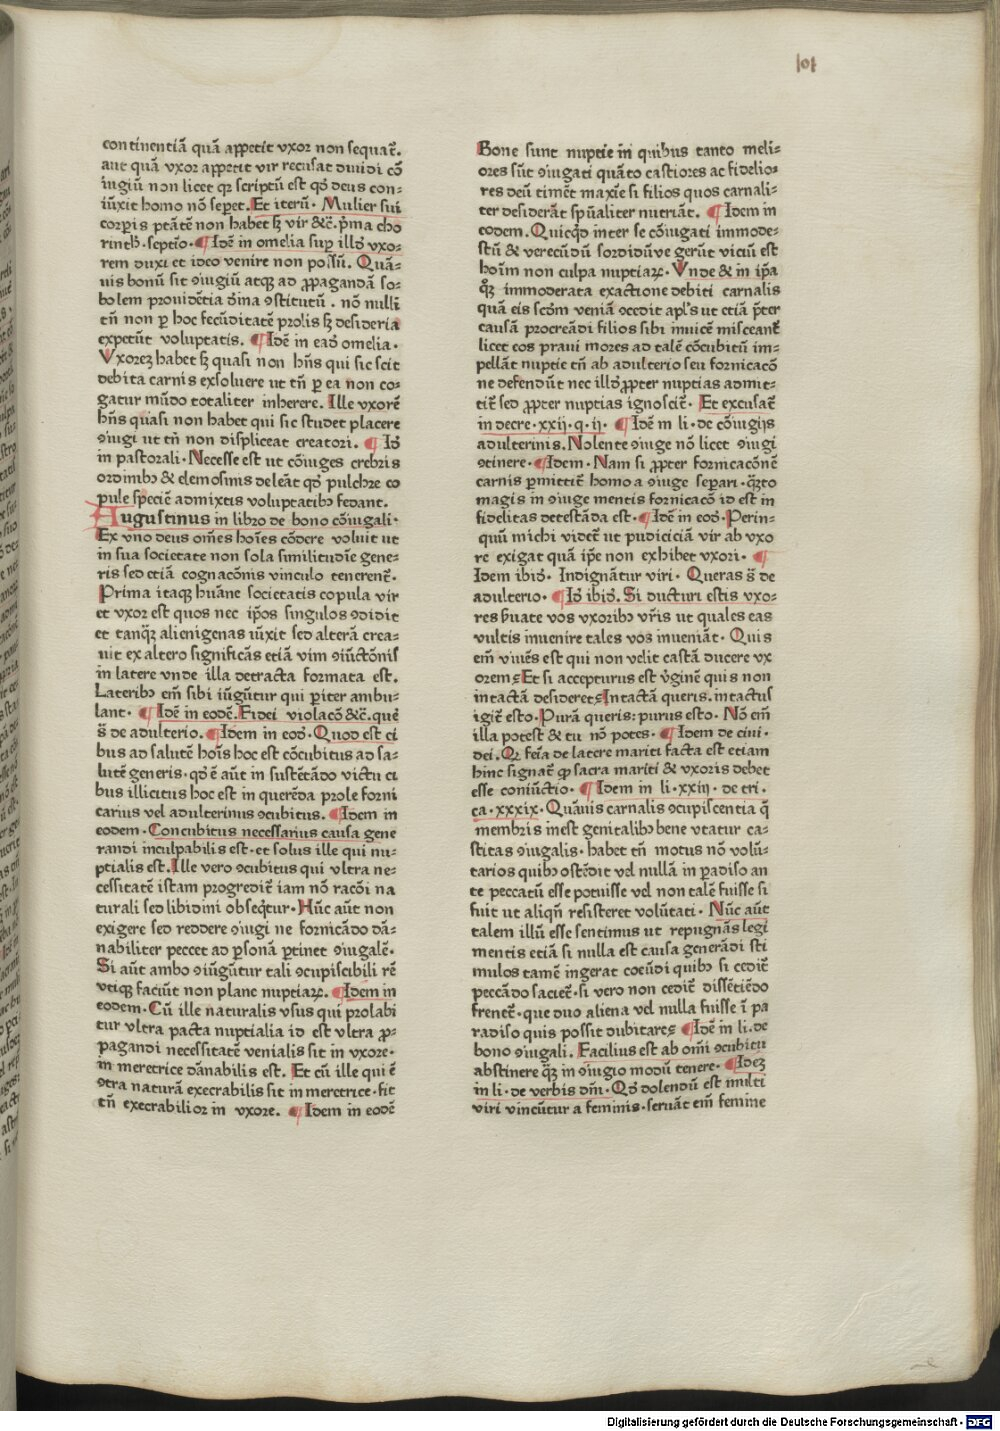 101
continentiā quā appetit vxor non sequat᷑.
aut quā vxor appetit vir recusat diuidi cō
iugiū non licet qꝛ scriptū est qđ deus con⸗
iūxit homo nō seꝑet. Et iterū. Mulier sui
corꝑis ptātē non habet sꝫ vir &c̄. p̄ma cho
rinth. septīo. ¶ Idē in omelia suꝑ illđ vxo⸗
rem duxi et ideo venire non possū. Quā⸗
uis bonū sit ꝯiugiū atqꝫ ad ꝓpagandā so⸗
bolem prouidētia diuina ꝯstitutū. nō nulli
tn̄ non ꝑ hoc fecūditatē prolis sꝫ desideria
expetūt voluptatis. ¶ Idē in eađ omelia.
Vxorez habet sꝫ quasi non hn̄s qui sic scit
debita carnis exsoluere ut tn̄ ꝑ ea non co⸗
gatur mūdo totaliter inherere. Ille vxorē
hn̄s quasi non habet qui sic studet placere
ꝯiugi ut tn̄ non displiceat creatori. ¶ Iđ
in pastorali. Necesse est ut cōiuges crebris
orōnibꝫ & elemosinis deleāt qđ pulchre co
pule speciē admixtis voluptatibꝫ fedant.
Augustinus in libro de bono cōiugali.
Ex vno deus om̄es hoīes cōdere voluit ut
in sua societate non sola similitudīe gene⸗
ris sed etiā cognacōnis vinculo tenerent᷑.
Prima itaqꝫ huāne societatis copula vir
et vxor est quos nec ip̄os singulos ꝯdidit
et tanqꝫ alienigenas iūxit sed alterā crea⸗
uit ex altero significās etiā vim ꝯiūctōnis
in latere vnde illa detracta formata est.
Lateribꝫ em̄ sibi iūgūtur qui ꝑiter ambu⸗
lant. ¶ Idē in eodē. Fidei violacō &c̄. quē
s̄ de adulterio. ¶ Idem in eođ. Quod est ci
bus ad salutē hoīs hoc est cōcubitus ad sa⸗
lutē generis. qđ ē aūt in sustētādo victu ci
bus illicitus hoc est in querēda prole forni
carius vel adulterinus ꝯcubitus. ¶ Idem in
eodem. Concubitus necessarius causa gene
randi inculpabilis est. et solus ille qui nu⸗
ptialis est. Ille vero ꝯcubitus qui vltra ne⸗
cessitatē istam progredit᷑ iam nō racōi na
turali sed libidini obseqtur. Hūc aūt non
exigere sed reddere ꝯiugi ne fornicādo dā⸗
nabiliter peccet ad ꝑsonā ꝑtinet ꝯiugalē.
Si aūt ambo ꝯiūgūtur tali ꝯcupiscibili rē
vtiqꝫ faciūt non plane nuptiaꝝ. ¶ Idem in
eodem. Cū ille naturalis vsus qui prolabi
tur vltra pacta nuptialia id est vltra ꝓ⸗
pagandi necessitatē venialis sit in vxore.
in meretrice dānabilis est. Et cū ille qui ē
ꝯtra naturā execrabilis sit in meretrice. fit
tn̄ execrabilior in vxore. ¶ Idem in eodē
Bone sunt nuptie in quibus tanto meli⸗
ores sūt ꝯiugati quāto castiores ac fidelio⸗
res deū timēt maxīe si filios quos carnali⸗
ter desiderāt spūaliter nutriāt. ¶ Idem in
eodem. Quicqđ inter se cōiugati immode⸗
stū & verecūdū sordidūve gerūt viciū est
hoīm non culpa nuptiaꝝ. Vnde & in ip̄a
qꝫ immoderata exactione debiti carnalis
quā eis scđm veniā ꝯcedit apl's ut etiā p̄ter
causā procreādi filios sibi inuicē misceant᷑
licet eos praui mores ad talē cōcubitū im⸗
pellāt nuptie tn̄ ab adulterio seu fornicacō
ne defendūt nec illđ ꝓpter nuptias admit⸗
tit᷑ sed ꝓpter nuptias ignoscit᷑. Et excusat᷑
in decre. xxij. q. ij. ¶ Idē in li. de cōiugijs
adulterinis. Nolente ꝯiuge nō licet ꝯiugi
ꝯtinere. ¶ Idem. Nam si ꝓpter fornicacōnē
carnis ꝑmittit᷑ homo a ꝯiuge seꝑari. qꝫto
magis in ꝯiuge mentis fornicacō id est in
fidelitas detestāda est. ¶ Idē in eođ. Perin⸗
quū michi videt᷑ ut pudiciciā vir ab vxo
re exigat quā ip̄e non exhibet vxori. ¶
Idem ibiđ. Indignātur viri. Queras s̄ de
adulterio. ¶ Iđ ibiđ. Si ducturi estis vxo⸗
res ẜuate vos vxoribꝫ vr̄is ut quales eas
vultis inuenire tales vos inueniāt. Quis
em̄ viuēs est qui non velit castā ducere vx
orem? Et si accepturus est v̓ginē quis non
intactā desideret? Intactā queris. intactus
igit᷑ esto. Purā queris: purus esto. Nō em̄
illa potest & tu nō potes. ¶ Idem de ciui.
dei. Qꝛ feīa de latere mariti facta est etiam
hinc signat᷑ ꝙ sacra mariti & vxoris debet
esse coniūctio. ¶ Idem in li. xxiij. de tri.
ca. xxxix. Quāuis carnalis ꝯcupiscentia q̄
membris inest genitalibꝫ bene vtatur ca⸗
stitas ꝯiugalis. habet tn̄ motus nō volū⸗
tarios quibꝫ ostēdit vel nullā in ꝑadiso an
te peccatū esse potuisse vel non talē fuisse si
fuit ut aliqn̄ resisteret volūtati. Nūc aūt
talem illū esse sentimus ut repugnās legi
mentis etiā si nulla est causa generādi sti
mulos tamē ingerat coeūdi quibꝫ si cedit᷑
peccādo saciet᷑. si vero non cedit᷑ dissētiēdo
frenet᷑. que duo aliena vel nulla fuisse ī pa
radiso quis possit dubitare? ¶ Idē in li. de
bono ꝯiugali. Facilius est ab om̄i ꝯcubitu
abstinere qꝫ in ꝯiugio modū tenere. ¶ Ideꝫ
in li. de verbis dn̄i. Qđ dolendū est multi
viri vincūtur a feminis. seruāt em̄ femine
Digitalisierung gefördert durch die Deutsche Forschungsgemeinschaft - DFG